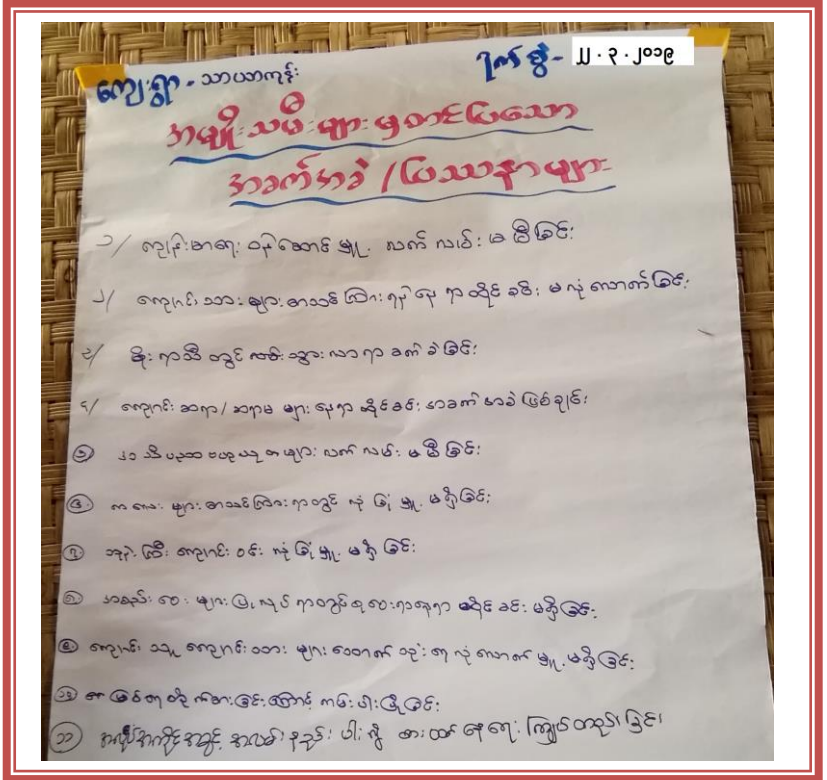 ကျေးရွာ - သာယာကုန်း
ရက်စွဲ - ၂၂.၃.၂၀၁၉
အမျိုးသမီးများမှတင်ပြသော
အခက်အခဲ / ပြဿနာများ
၁/ ကျန်းမာရေး ဝန်ဆောင်မှု. လက်လှမ်း မမီခြင်း
၂/ ကျောင်းသား များ စာသင်ကြား ရန် နေရာထိုင်ခင်း မလုံလောက်ခြင်း
၃/ မိုးရာသီ တွင် လမ်းသွားလာရာ ခက်ခဲခြင်း
၄/ ကျောင်း ဆရာ / ဆရာမ များ နေရာ ထိုင်ခင်း အခက်အခဲ ဖြစ်ခြင်း
၅ အသိပညာ ဗဟုသုတ များ လက်လှမ်း မမီခြင်း
၆ ကလေး များ စာသင်ကြားရာတွင် လုံခြုံမှု. မရှိခြင်း
၇ ဘုန်းကြီး ကျောင်း ဝင်း လုံခြုံမှု. မရှိခြင်း
၈ အစည်းဝေး များ ပြုလုပ်ရာတွင် စုဝေးရာနေရာ ထိုင်ခင်း မရှိခြင်း
၉ ကျောင်းသူ ကျောင်းသား များ သောက်သုံးရေ လုံလောက်မှု. မရှိခြင်း
၁၀ ရေ တိုက်စားခြင်းကြောင့် ကမ်းပါးပြိုခြင်း
၁၁ အလုပ်အကိုင်အခွင့် အလမ်း နည်းပါး၍ စားဝတ်နေရေး ကျပ်တည်းခြင်း